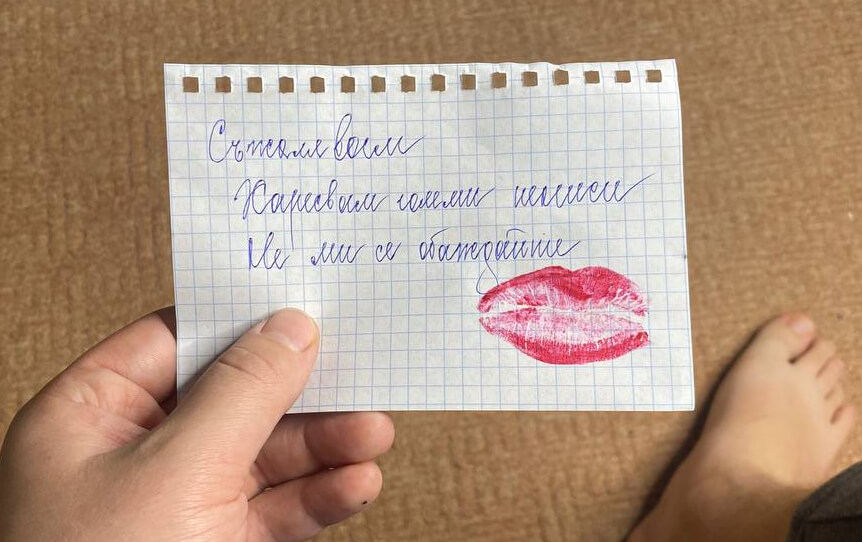 Съжалявам
Харесвам големи пениси
Не ми се обаждайте